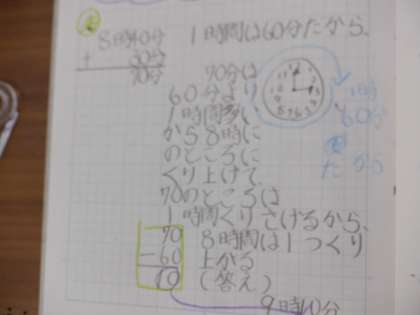 8時40分
+ 30分
70分
1時間は60分だから、
70分は
60分より
1時間多い
から8時に
のところに
くり上げて
70のところは
1時間くりさげるから、
70
-60
10
8時間は1つくり
上がる
(答え)
9時10分
1時
60分
だから